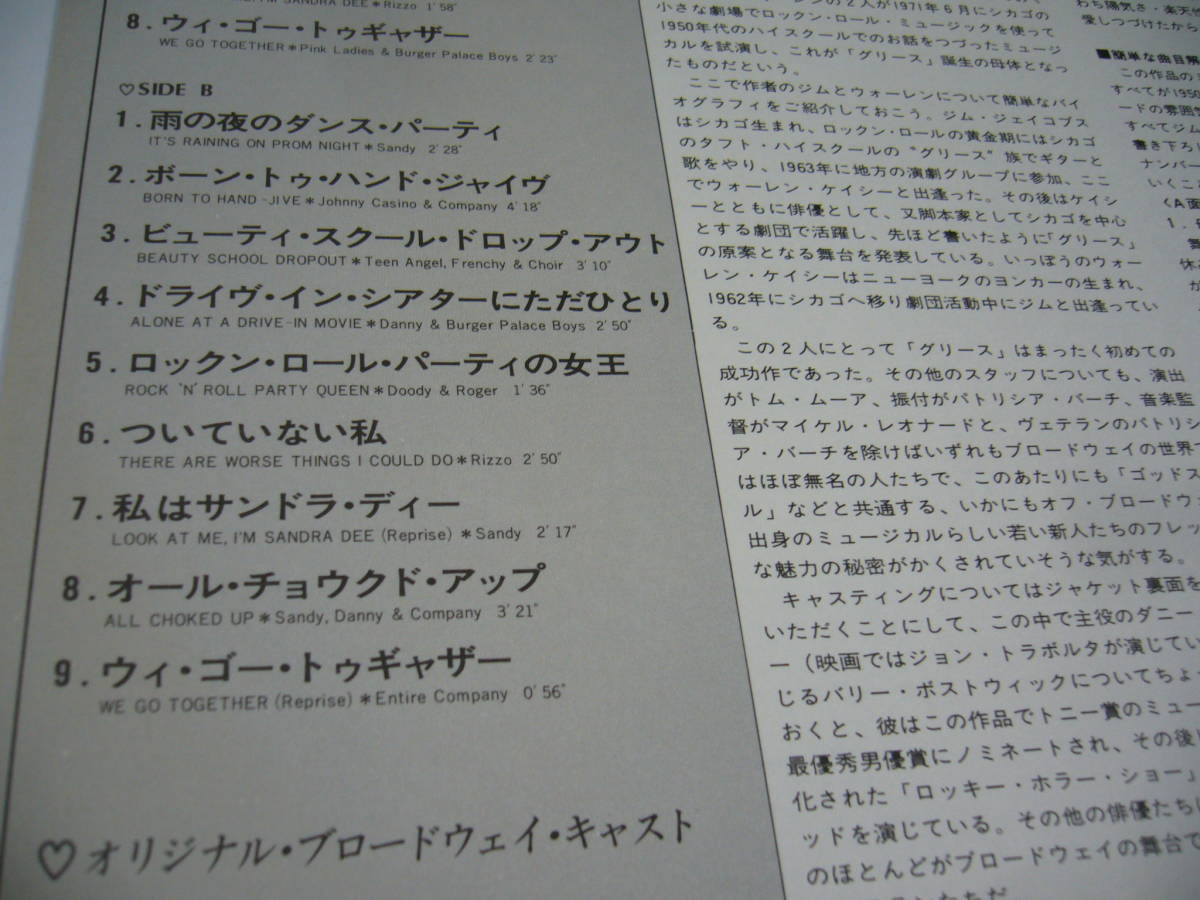 I'M SANDRA DEE * Rizzo 1'58"
8. ウィ・ゴー・トゥギャザー
WE GO TOGETHER * Pink Ladies & Burger Palace Boys 2'23"
♡SIDE B
1. 雨の夜のダンス・パーティ
IT'S RAINING ON PROM NIGHT * Sandy 2'28"
2. ボーン・トゥ・ハンド・ジャイヴ
BORN TO HAND-JIVE * Johnny Casino & Company 4'18"
3. ビューティ・スクール・ドロップ・アウト
BEAUTY SCHOOL DROPOUT * Teen Angel, Frenchy & Choir 3'10"
4. ドライヴ・イン・シアターにただひとり
ALONE AT A DRIVE-IN MOVIE * Danny & Burger Palace Boys 2'50"
5. ロックン・ロール・パーティの女王
ROCK 'N' ROLL PARTY QUEEN * Doody & Roger 1'36"
6. ついていない私
THERE ARE WORSE THINGS I COULD DO * Rizzo 2'50"
7. 私はサンドラ・ディー
LOOK AT ME, I'M SANDRA DEE (Reprise) * Sandy 2'17"
8. オール・チョウクド・アップ
ALL CHOKED UP * Sandy, Danny & Company 3'21"
9. ウィ・ゴー・トゥギャザー
WE GO TOGETHER (Reprise) * Entire Company 0'56"
♡オリジナル・ブロードウェイ・キャスト
の2人が1971年6月にシカゴの
小さな劇場でロックン・ロール・ミュージックを使って
1950年代のハイスクールでのお話をつづったミュージ
カルを試演し、これが「グリース」誕生の母体となっ
たものだという。
ここで作者のジムとウォーレンについて簡単なバイ
オグラフィをご紹介しておこう。ジム・ジェイコブス
はシカゴ生まれ、ロックン・ロールの黄金期にはシカゴ
のタフト・ハイスクールの"グリース"族でギターと
歌をやり、1963年に地方の演劇グループに参加、ここ
でウォーレン・ケイシーと出逢った。その後はケイシ
ーとともに俳優として、又脚本家としてシカゴを中心
とする劇団で活躍し、先ほど書いたように「グリース」
の原案となる舞台を発表している。いっぽうのウォー
レン・ケイシーはニューヨークのヨンカーの生まれ、
1962年にシカゴへ移り劇団活動中にジムと出逢ってい
る。
この2人にとって「グリース」はまったく初めての
成功作であった。その他のスタッフについても、演出
がトム・ムーア、振付がパトリシア・バーチ、音楽監
督がマイケル・レオナードと、ヴェテランのパトリシ
ア・バーチを除けばいずれもブロードウェイの世界
はほぼ無名の人たちで、このあたりにも「ゴッドス
ル」などと共通する、いかにもオフ・ブロードウェ
出身のミュージカルらしい若い新人たちのフレッ
な魅力の秘密がかくされていそうな気がする。
キャスティングについてはジャケット裏面を
いただくことにして、この中で主役のダニー
ー（映画ではジョン・トラボルタが演じてい
じるバリー・ボストウィックについてちょ
おくと、彼はこの作品でトニー賞のミュー
最優秀男優賞にノミネートされ、その後
化された「ロッキー・ホラー・ショー」
ッドを演じている。その他の俳優たち
のほとんどがブロードウェイの舞台で
わち陽気さ・楽天
愛しつづけたから
■簡単な曲目解
この作品の
すべてが1950
ードの雰囲
すべてジム
書き下ろし
ナンバー
いくこ
〈A面
1.